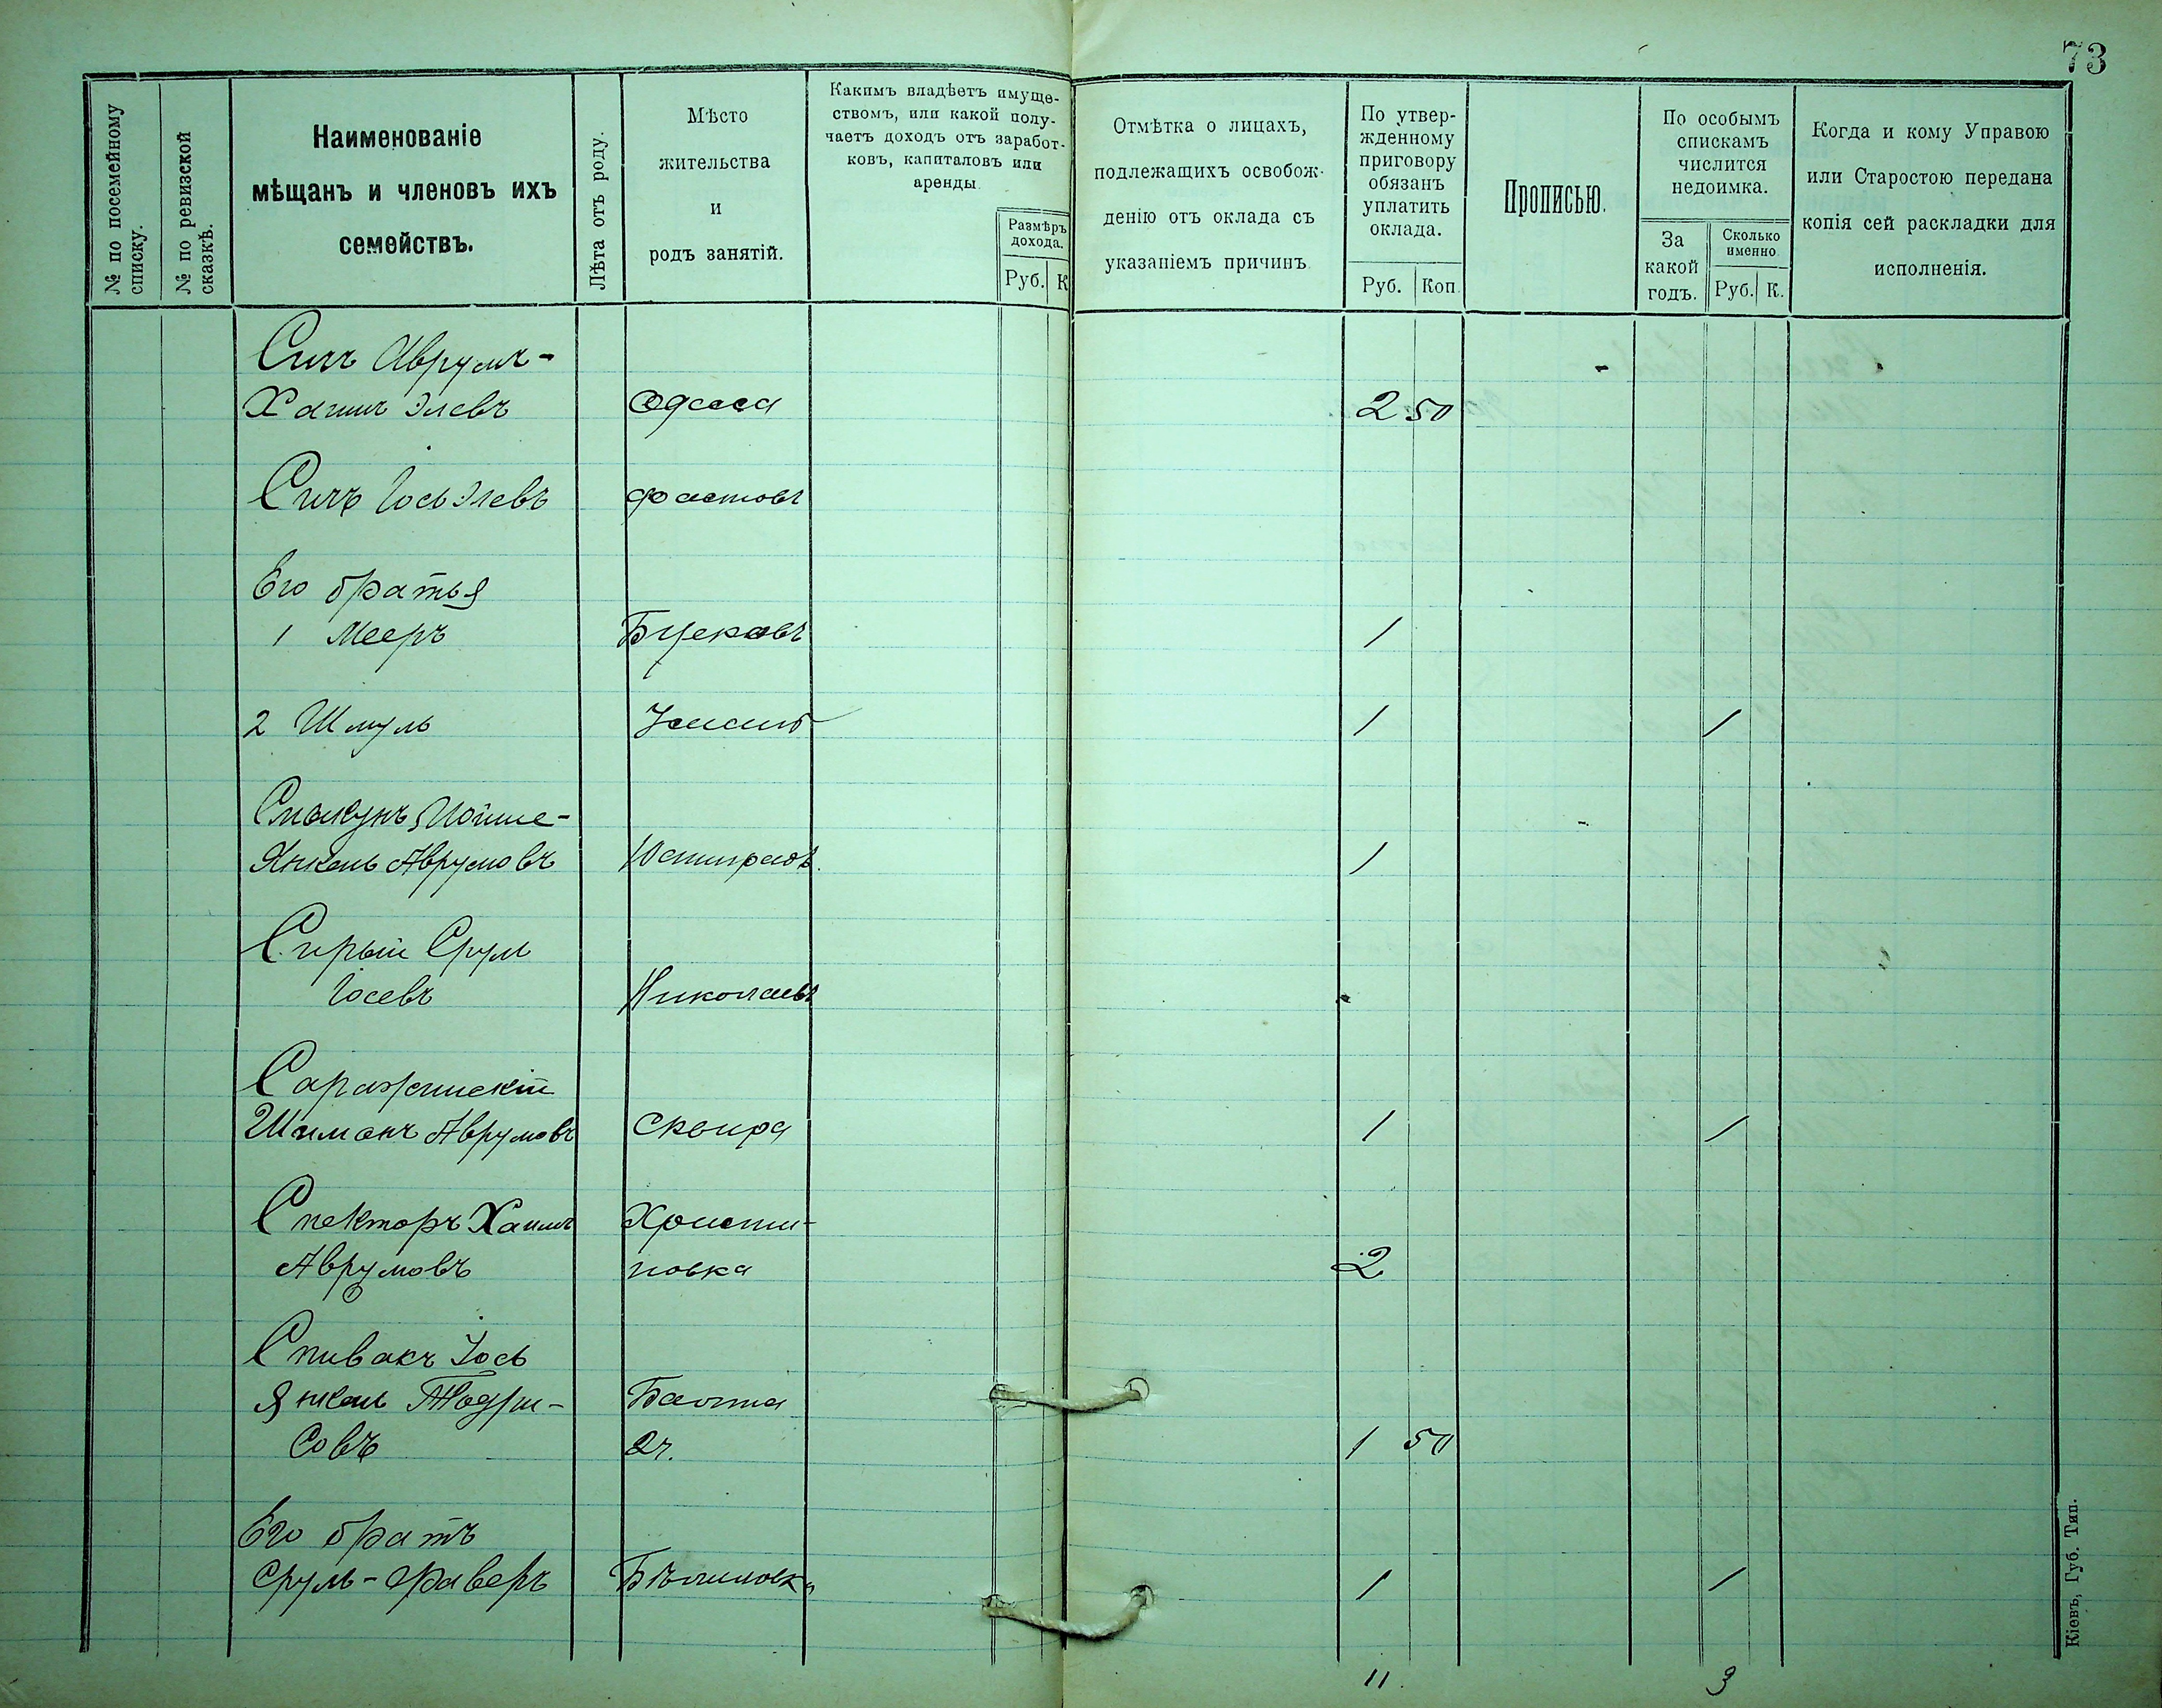 73
№ по посемейному списку.
№ по ревизской сказкѣ.
Наименованіе
мѣщанъ и членовъ ихъ
семействъ.
Лѣта отъ роду.
Мѣсто
жительства
и
родъ занятій.
Какимъ владѣетъ имуще-
ствомъ, или какой полу-
чаетъ доходъ отъ заработ-
ковъ, капиталовъ или
аренды.
Размѣръ
дохода.
Руб. К
Отмѣтка о лицахъ,
подлежащихъ освобож-
денію отъ оклада съ
указаніемъ причинъ.
По утвер-
жденному
приговору
обязанъ
уплатить
оклада.
Руб. Коп.
Прописью.
По особымъ
спискамъ
числится
недоимка.
За
какой
годъ.
Сколько
именно
Руб. К.
Когда и кому Управою
или Старостою передана
копія сей раскладки для
исполненія.
Аврумъ-
Хаимъ Элевъ Одесса 2 50
Іось Элевъ Фастовъ
Его братья
1 Мееръ 1
2 Шмуль 1 1
Янкель Аврумовъ 1
Сирый Сруль
Іосевъ Николаевъ
Шимонъ Аврумовъ Сквира 1 1
Спекторъ Хаимъ Христи-
Аврумовъ новка 2
Спивакъ Іось
Янкель Тодри- Балта
совъ 1 50
Его братъ
Сруль- 1 1
11. 3
Кіевъ, Губ. Тип.